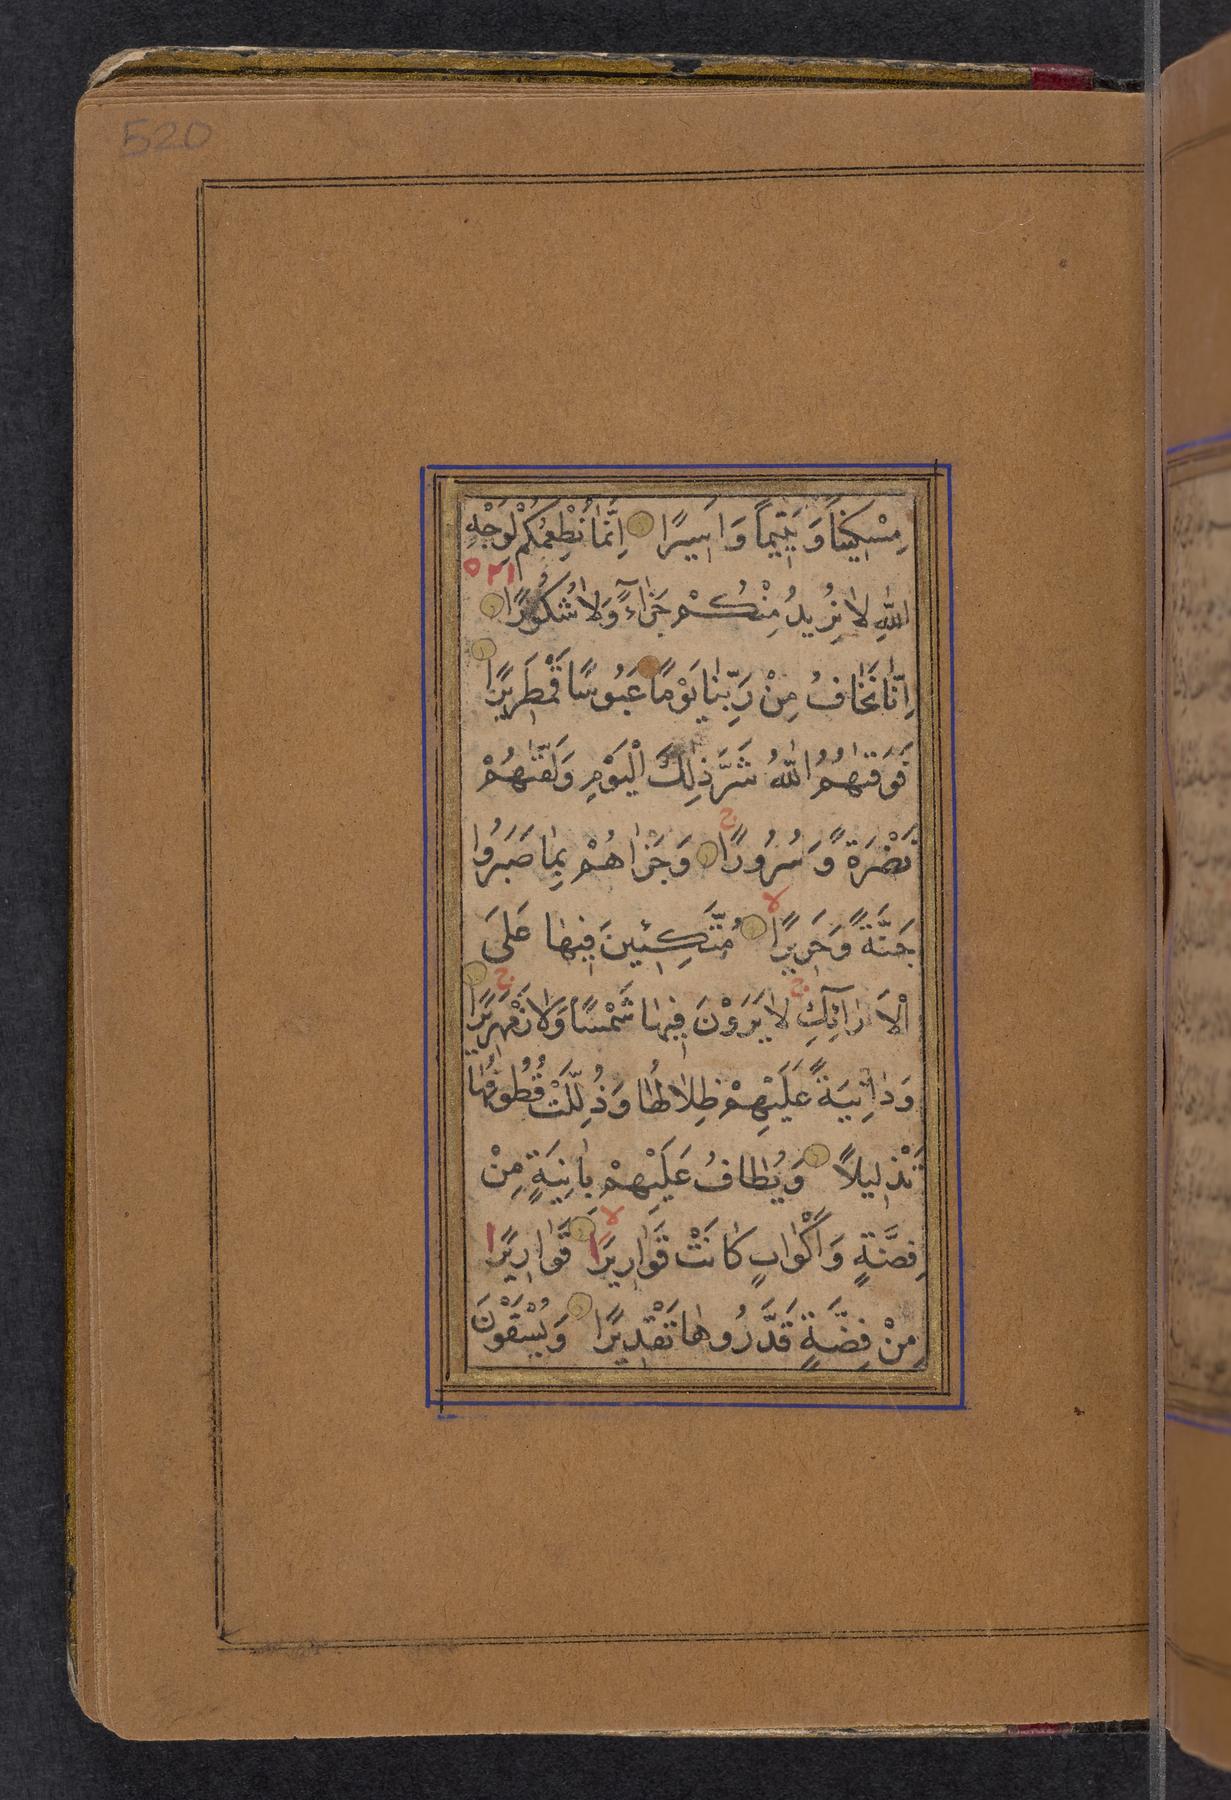 520
مِسْكِيناً وَيَتِيماً وَاَسِيرًا اِنَّمٰا نُطْعِمُكُمْ لِوَجْهِ
اللّٰهِ لاٰ نُرِيدُ مِنْكُمْ جَزٰاءً وَلاٰ شُكُورًا
اِنّٰا نَخٰافُ مِنْ رَبِّنٰا يَوْمًا عَبُوسًا قَمْطَرِيرًا
فَوَقٰيهُمُ اللّٰهُ شَرَّ ذٰلِكَ الْيَوْمِ وَلَقّٰيهُمْ
نَضْرَةً وَسُرُورًا ج وَجَزٰاهُمْ بِمٰا صَبَرُوا
جَنَّةً وَحَرِيرًا لا مُتَّكِئِينَ فِيهٰا عَلَى
الْاَرٰائِكِ ج لاٰ يَرَوْنَ فِيهٰا شَمْسًا وَلاٰ زَمْهَرِيرًا ج
وَدٰانِيَةً عَلَيْهِمْ ظِلاٰلُهٰا وَذُلِّلَتْ قُطُوفُهٰا
تَذْلِيلاً وَيُطٰافُ عَلَيْهِمْ بِاٰنِيَةٍ مِنْ
فِضَّةٍ وَاَكْوٰابٍ كٰانَتْ قَوٰارِيرَا لا قَوٰارِيرَا
مِنْ فِضَّةٍ قَدَّرُوهٰا تَقْدِيرًا وَيُسْقَوْنَ